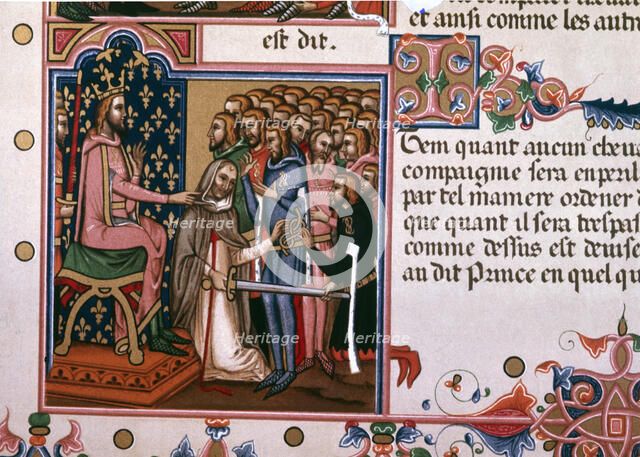 et ainsi comme les autr
est dit.
Item quant aucun cheua
compaignie sera en peril
par tel maniere ordener d
que quant il sera trespas
comme dessus est deuise
au dit Prince en quel qu
Heritage
Heritage
Heritage
Heritage
Heritage
Heritage